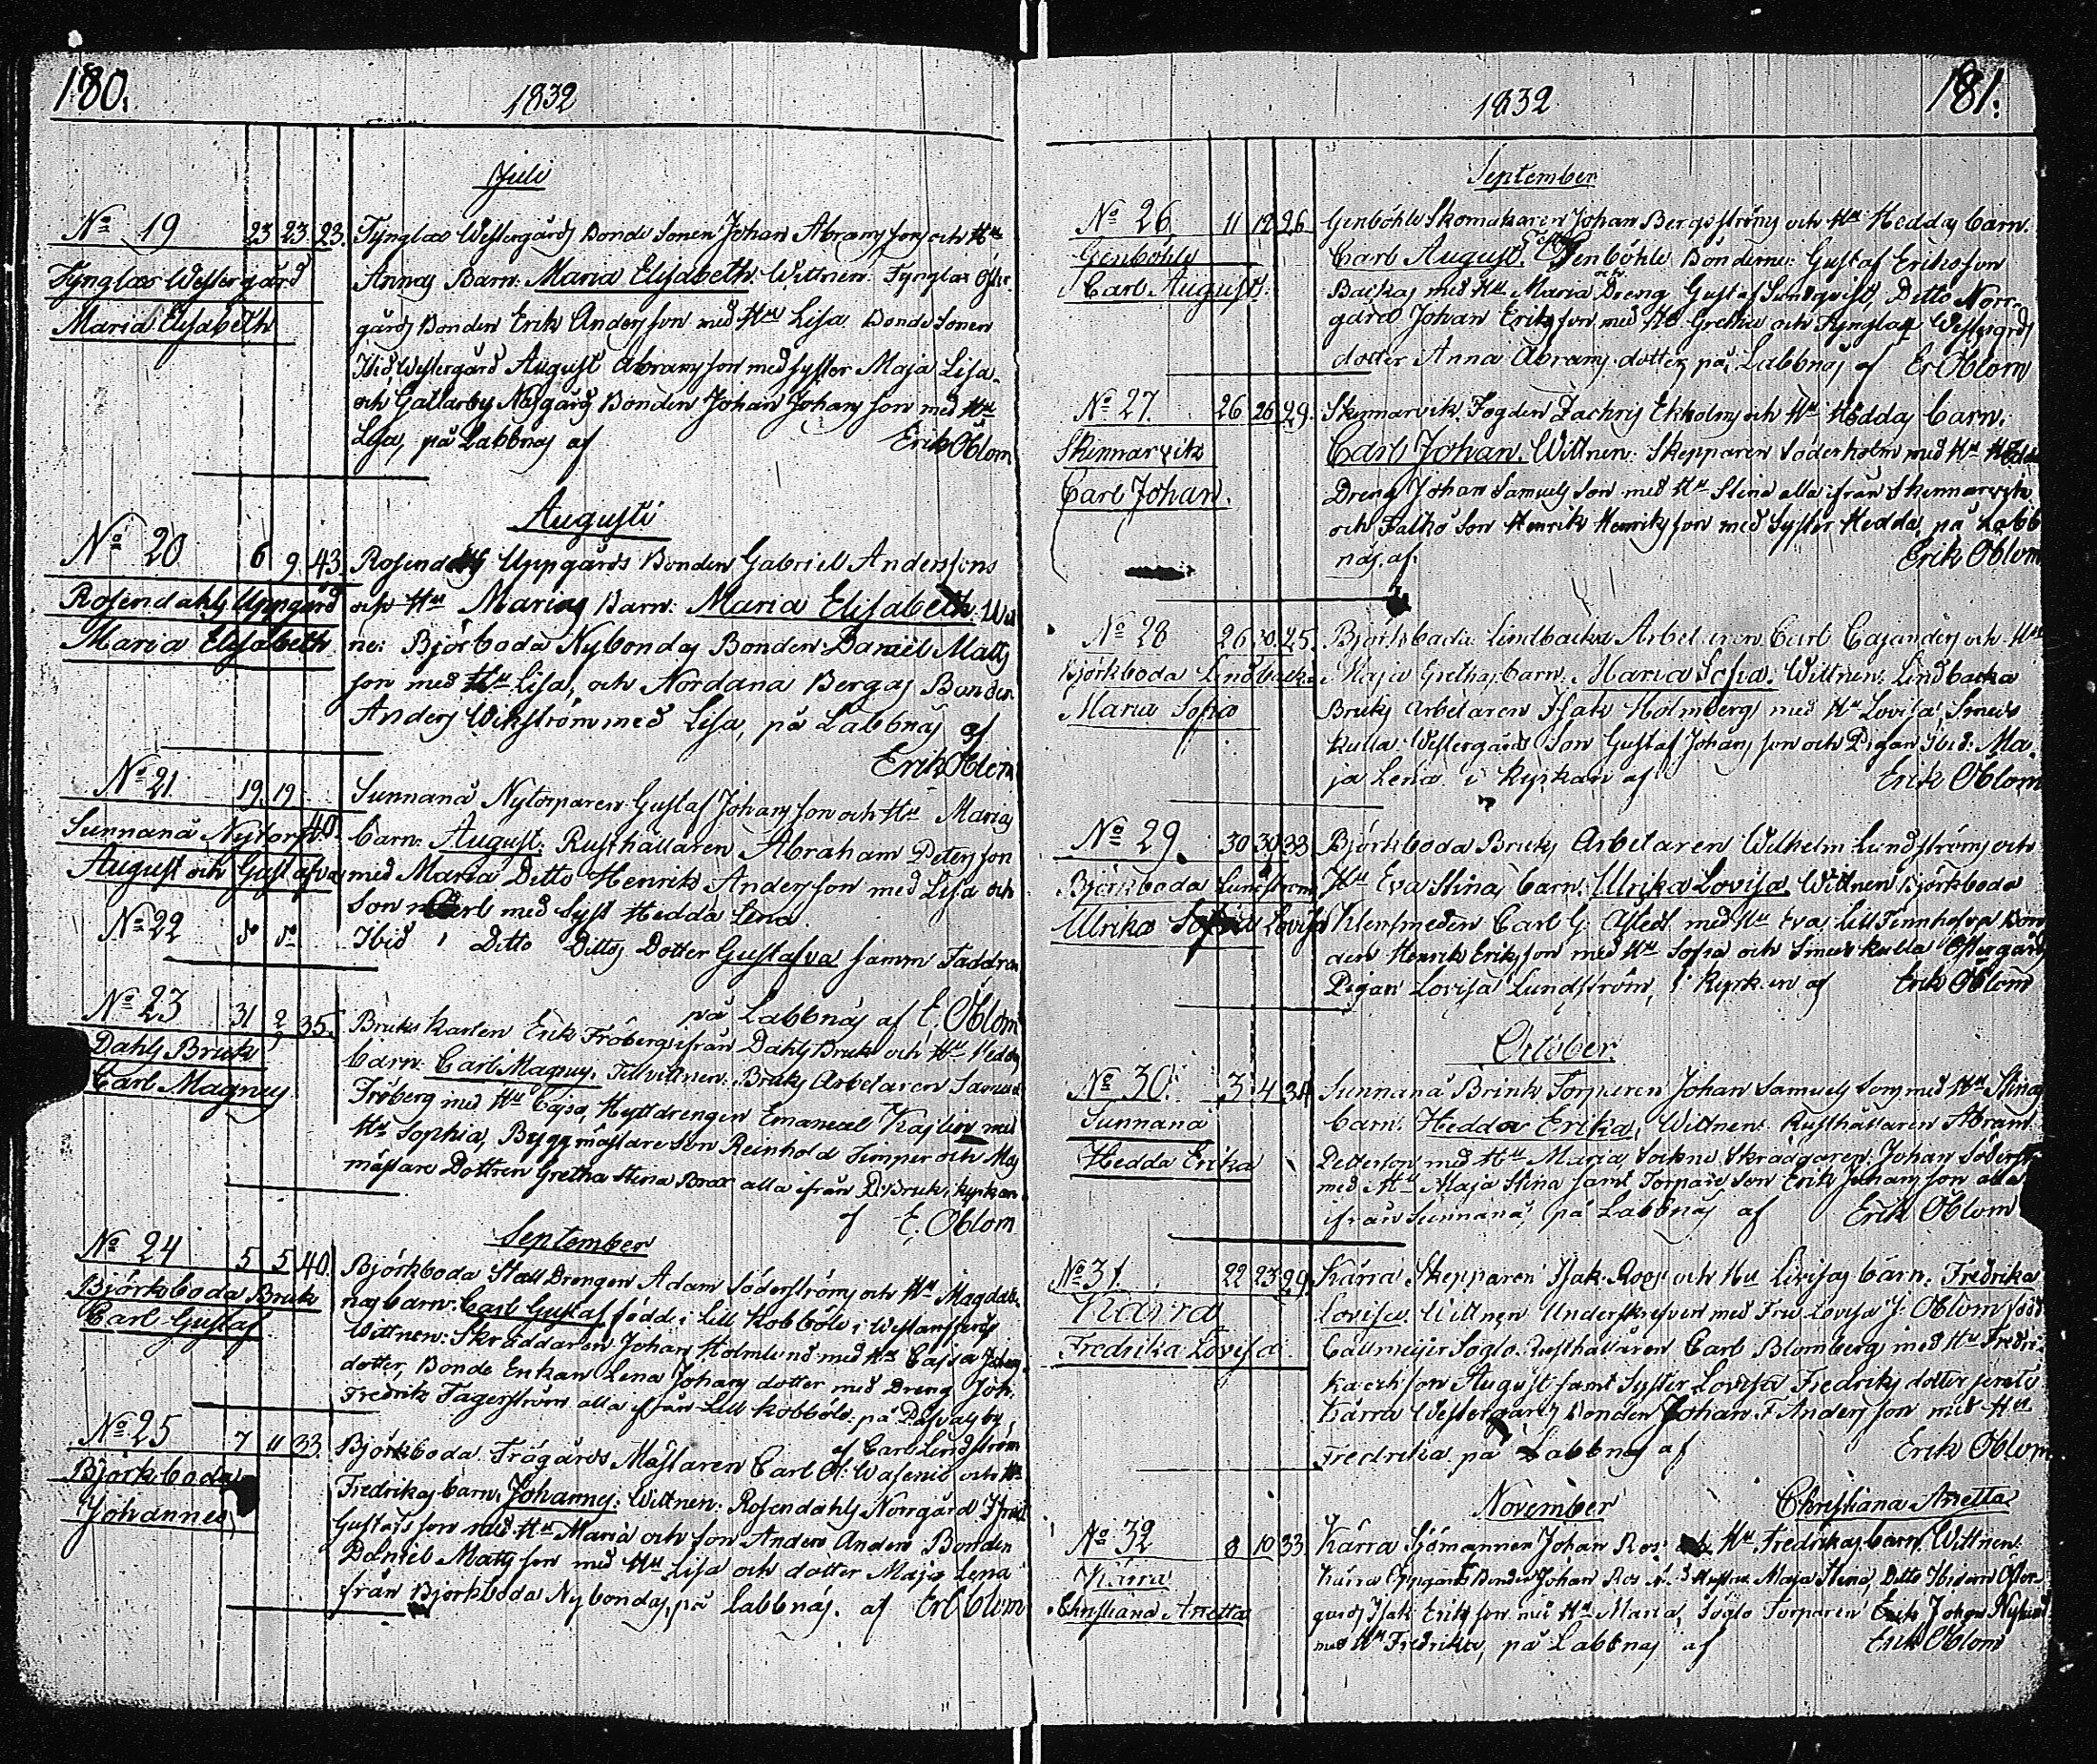 180.
1832
Juli
No 19 23 23 23. Fynglax Westergårds Bonde Sonen Johan Abramsson och Hu
Fynglax Westergård Annas Barn: Maria Elisabeth. Wittnen: Fynglax Öster-
Maria Elisabeth gårds Bonden Erik Andersson med Hu Lisa Bonde Sonen
Ibid Westergård August Abramsson med syster Maja Lisa
och Gallarby Näsgårds Bonden Johan Johansson med Hu
Lisa, på Labbnäs af Erik Oblom
Augusti
No 20 6 9 43. Rosendahls Uppgårds Bonden Gabriel Anderssons
Rosendahls Uppgård och Hu Marias Barn: Maria Elisabeth. Witt
Maria Elisabeth ne: Björboda Nybondas Bonden Daniel Matts
son med Hu Lisa, och Nordana Bergas Bonden
Anders Wikström med Lisa, på Labbnäs af
Erik Oblom
No 21 19 19 40. Sunnanå Nytorparen Gustaf Johansson och Hu Marias
Sunnanå Nytorp barn: August. Rusthållaren Abraham Petersson
August och Gustafva med Maria Ditto Henrik Andersson med Lisa och
Son Carl med Syst Hedda Lena
No 22 do do Ibid Ditto Dittos Dotter Gustafva samm Faddrar
på Labbnäs af E. Oblom
No 23 31 2 35. Bruks Karlen Erik Fröbergs ifrån Dahls Bruk och Hu Heddas
Dahls Bruk barn: Carl Magnus. Till vittnen: Bruks Arbetaren Samuel
Carl Magnus Fröberg med Hu Cajsa, Hyttdrengen Emanuel Kajlin med
Hu Sophia, Byggmästare Son Reinhold Timper och Mas
mästare Dottren Gretha Stina Brax alla ifrån D. Bruk, i kyrkan
af E. Oblom
September
No 24 5 5 40. Björkboda Stall Drengen Adam Söderströms och Hu Magdale
Björkboda Bruk nas barn: Carl Gustaf född i Lill Kobböle i Westanfjerd
Carl Gustaf Wittnen: Skräddaren Johan Holmlund med Hu Cajsa Johans
dotter, Bonde Enkan Lena Johans dotter med Dreng Joh.
Fredrik Fagerström alla ifrån Lill Kobböle på Dalsbyby
af Carl Lindström
No 25 7 11 33. Björkboda Trägårds Mästaren Carl H. Wasenii och Hu
Björkboda Fredrikas barn: Johannes. Wittnen: Rosendahls Norrgård
Johannes Gustafsson med Hu Maria och son Anders Anders Bonden
Daniel Mattsson med Hu Lisa och dotter Maja Lena
ifrån Björkboda Nybondas, på Labbnäs. af Er Oblom
181.
1832
September
No 26 11 12 26 Genböhle Skomakaren Johan Bergströms och Hu Heddas barn.
Genböhle Carl August. Genböhle Bönderne: Gustaf Eriksson
Carl August. Backas med Hu Maria Dreng Gustaf Sundqvist, Ditto Norr-
gård Johan Eriksson med Hu Gretha och Fynglax Westergårds
dotter Anna Abrams dotter, på Labbnäs af Er Oblom
No 27. 26 26 29. Skinnarvik Fogden Zachris Ekholms och Hu Heddas barn.
Skinnarvik Carl Johan. Wittnen: Skepparen Söderholm med Hu Hedda
Carl Johan. Dreng Johan Samuelsson med Hu Stina alla ifrån Skinnarvik
och Falkö Son Henrik Henriksson med Syster Hedda, på Labb
näs. af Erik Oblom
No 28 26 30 25. Björkboda Lindbacka Arbetaren Carl Cajanders och Hu
Björkboda Lindbacka Maja Grethas barn: Maria Sofia. Wittnen: Lindbacka
Maria Sofia Bruks Arbetaren Isak Holmberg med Hu Lovisa, Smeds
kulla Westergårds Son Gustaf Johansson och Pigan Ibid: Ma-
ja Lena i Kyrkan af Erik Oblom
No 29. 30 30 33 Björkboda Bruks Arbetaren Wilhelm Lundströms och
Björkboda Lundström Hu Eva Stinas barn: Ulrika Lovisa. Wittnen Björkboda
Ulrika Lovisa Klensmeden Carl G. Alstedt med Hu Eva, Lill Finnhofva Bon
den Henrik Eriksson med Hu Sofia och Smedskulla Östergårds
Pigan Lovisa Lundström, i Kyrkan af Erik Oblom
October
No 30. 3 4 34 Sunnanå Brink Torparen Johan Samuelssons med Hu Stinas
Sunnanå barn: Hedda Erika, Wittnen: Rusthållaren Abram
Hedda Erika Pettersson med Hu Maria, Sockne Skräddaren Johan Söderström
med Hu Maja Stina samt Torpare Son Erik Johansson alla
ifrån Sunnanå, på Labbnäs af Erik Oblom
No 31. 22 23 29 Kärra Skepparen Isak Roos och Hu Lovisas barn: Fredrika
Kärra Lovisa. Wittnen Underskrefven med Fru Lovisa J. Oblom född
Fredrika Lovisa Callmeijer Söglo Rusthållaren Carl Blomberg med Hu Fredri
ka och son August samt Syster Lovisa Fredriks dotter
Kärra Westergårds Bonden Johan F Andersson med Hu
Fredrika på Labbnäs af Erik Oblom
November Christiana Anetta
No 32 8 10 33 Kärra Sjömannen Johan Ros och Hu Fredrikas barn. Wittnen:
Kärra Kärra Oppgårds Bonden Johan Ros Maja Stina, Ditto Ibidem Öster-
Christiana Anetta gårds Isak Eriksson med Hu Maria, Söglo Torparen Erik Johan Nylund
med Hu Fredrika, på Labbnäs af Erik Oblom